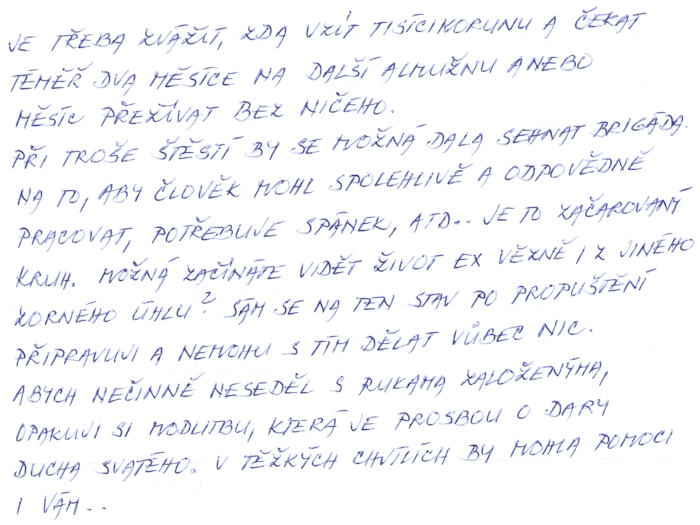 JE TŘEBA ZVÁŽIT, ZDA VZÍT TISÍCIKORUNU A ČEKAT
TÉMĚŘ DVA MĚSÍCE NA DALŠÍ ALMUŽNU ANEBO
MĚSÍC PŘEŽÍVAT BEZ NIČEHO.
PŘI TROŠE ŠTĚSTÍ BY SE MOŽNÁ DALA SEHNAT BRIGÁDA.
NA TO, ABY ČLOVĚK MOHL SPOLEHLIVĚ A ODPOVĚDNĚ
PRACOVAT, POTŘEBUJE SPÁNEK, ATD.. JE TO ZAČAROVANÝ
KRUH. MOŽNÁ ZAČÍNÁTE VIDĚT ŽIVOT EX VĚZNĚ I Z JINÉHO
ZORNÉHO ÚHLU? SÁM SE NA TEN STAV PO PROPUŠTĚNÍ
PŘIPRAVUJI A NEMOHU S TÍM DĚLAT VŮBEC NIC.
ABYCH NEČINNĚ NESEDĚL S RUKAMA ZALOŽENÝMA,
OPAKUJI SI MODLITBU, KTERÁ JE PROSBOU O DARY
DUCHA SVATÉHO. V TĚŽKÝCH CHVÍLÍCH BY MOHLA POMOCI
I VÁM..